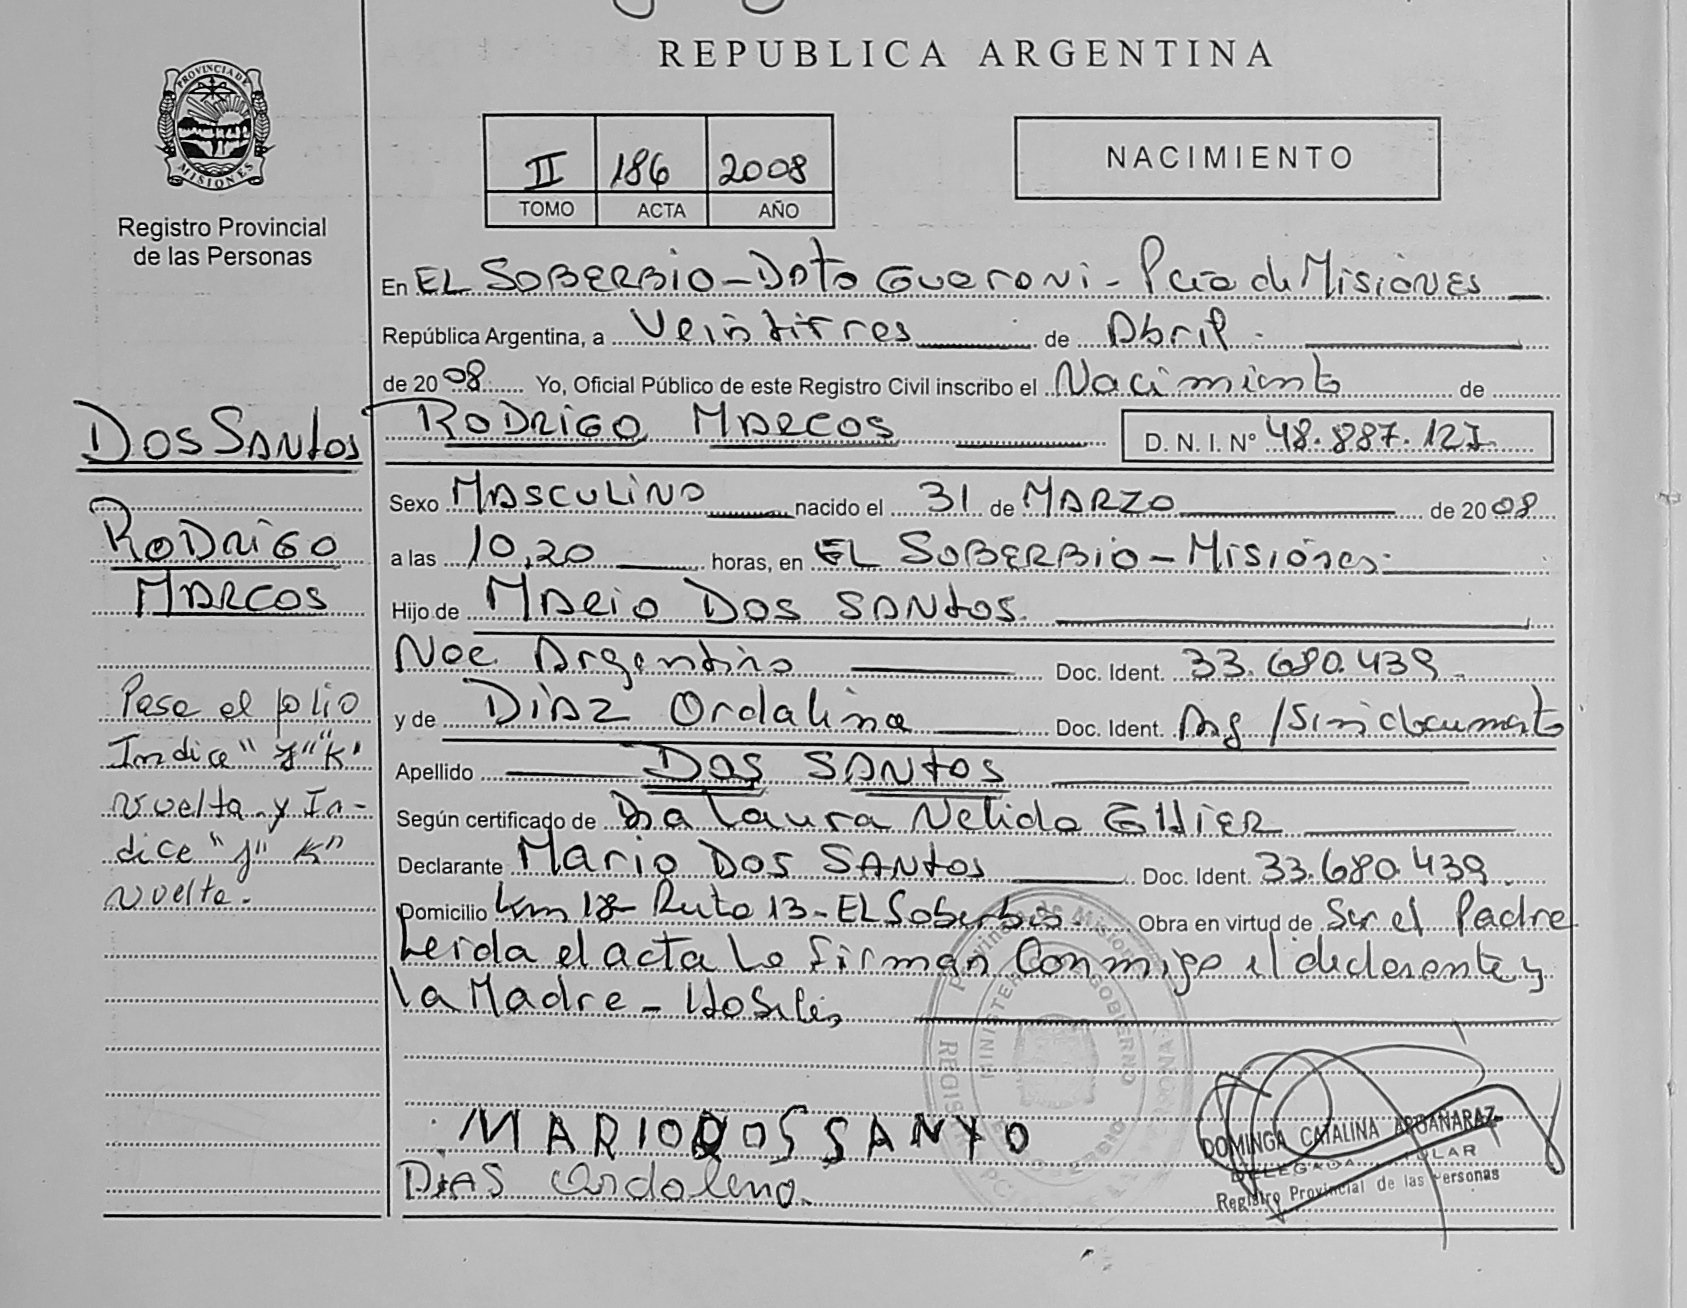 REPUBLICA ARGENTINA
PROVINCIA DE
MISIONES
Registro Provincial
de las Personas
II 186 2008
TOMO ACTA AÑO
NACIMIENTO
En EL SOBERBIO - Dpto Guarani - Pcia de Misiones
República Argentina, a Veintitres de Abril
de 2008 Yo, Oficial Público de este Registro Civil inscribo el Nacimiento de
RODRIGO MARCOS D. N. I. N° 48.887.127
Sexo MASCULINO nacido el 31 de MARZO de 2008
a las 10,20 horas, en EL SOBERBIO - Misiones
Hijo de MARIO DOS SANTOS
Nac Argentino Doc. Ident. 33.680.439
y de DIAZ Ordalina Doc. Ident. Arg / Sin documento
Apellido DOS SANTOS
Según certificado de Dra Laura Nelida
Declarante MARIO DOS SANTOS Doc. Ident. 33.680.439
Domicilio Km 18 Ruta 13 - EL Soberbio Obra en virtud de Ser el Padre
Leida el acta La firman Conmigo el declarante y
la Madre -
DOS SANtos
RODRIGO
MARCOS
Pasa el folio
Indice "J" "K"
vuelta y In-
dice "J" K"
vuelta.
MARIO DOS SANYO
DiAS Ordalena
DOMINGA CATALINA ARGAÑARAZ
DELEGADA TITULAR
Registro Provincial de las Personas